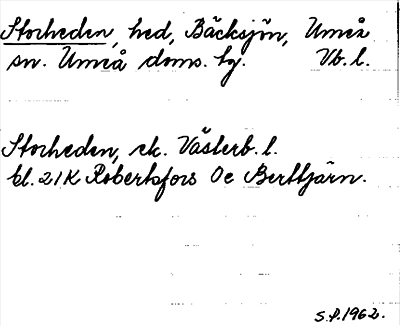 Storheden, hed, Bäcksjön, Umeå
sn. Umeå doms. hg. Vb. l.
Storheden, ek. Västerb. l.
bl. 21K Robertsfors Oe Berttjärn.
S.P. 1962.